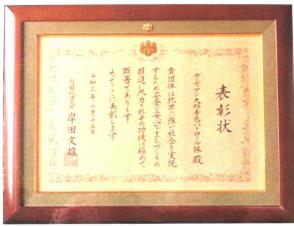 表彰状
殿
貴団体は犯罪に強い社会を実現
するため安全で安心なまちづくりの
推進に尽力されその功績は極めて
顕著であります
よってここに表彰します
令和三年十月十二日
内閣総理大臣
岸田文雄